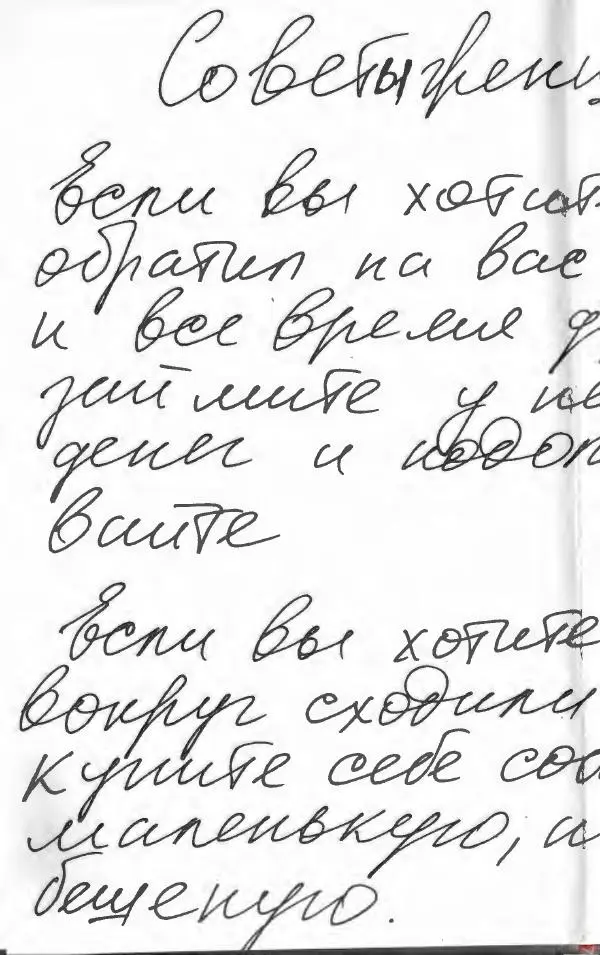 Советы женщ
Если вы хотит
обратил на вас
и все время д
займите у не
денег и
вайте
Если вы хотите
вокруг сходили
купите себе соб
маленькую, н
бешеную.